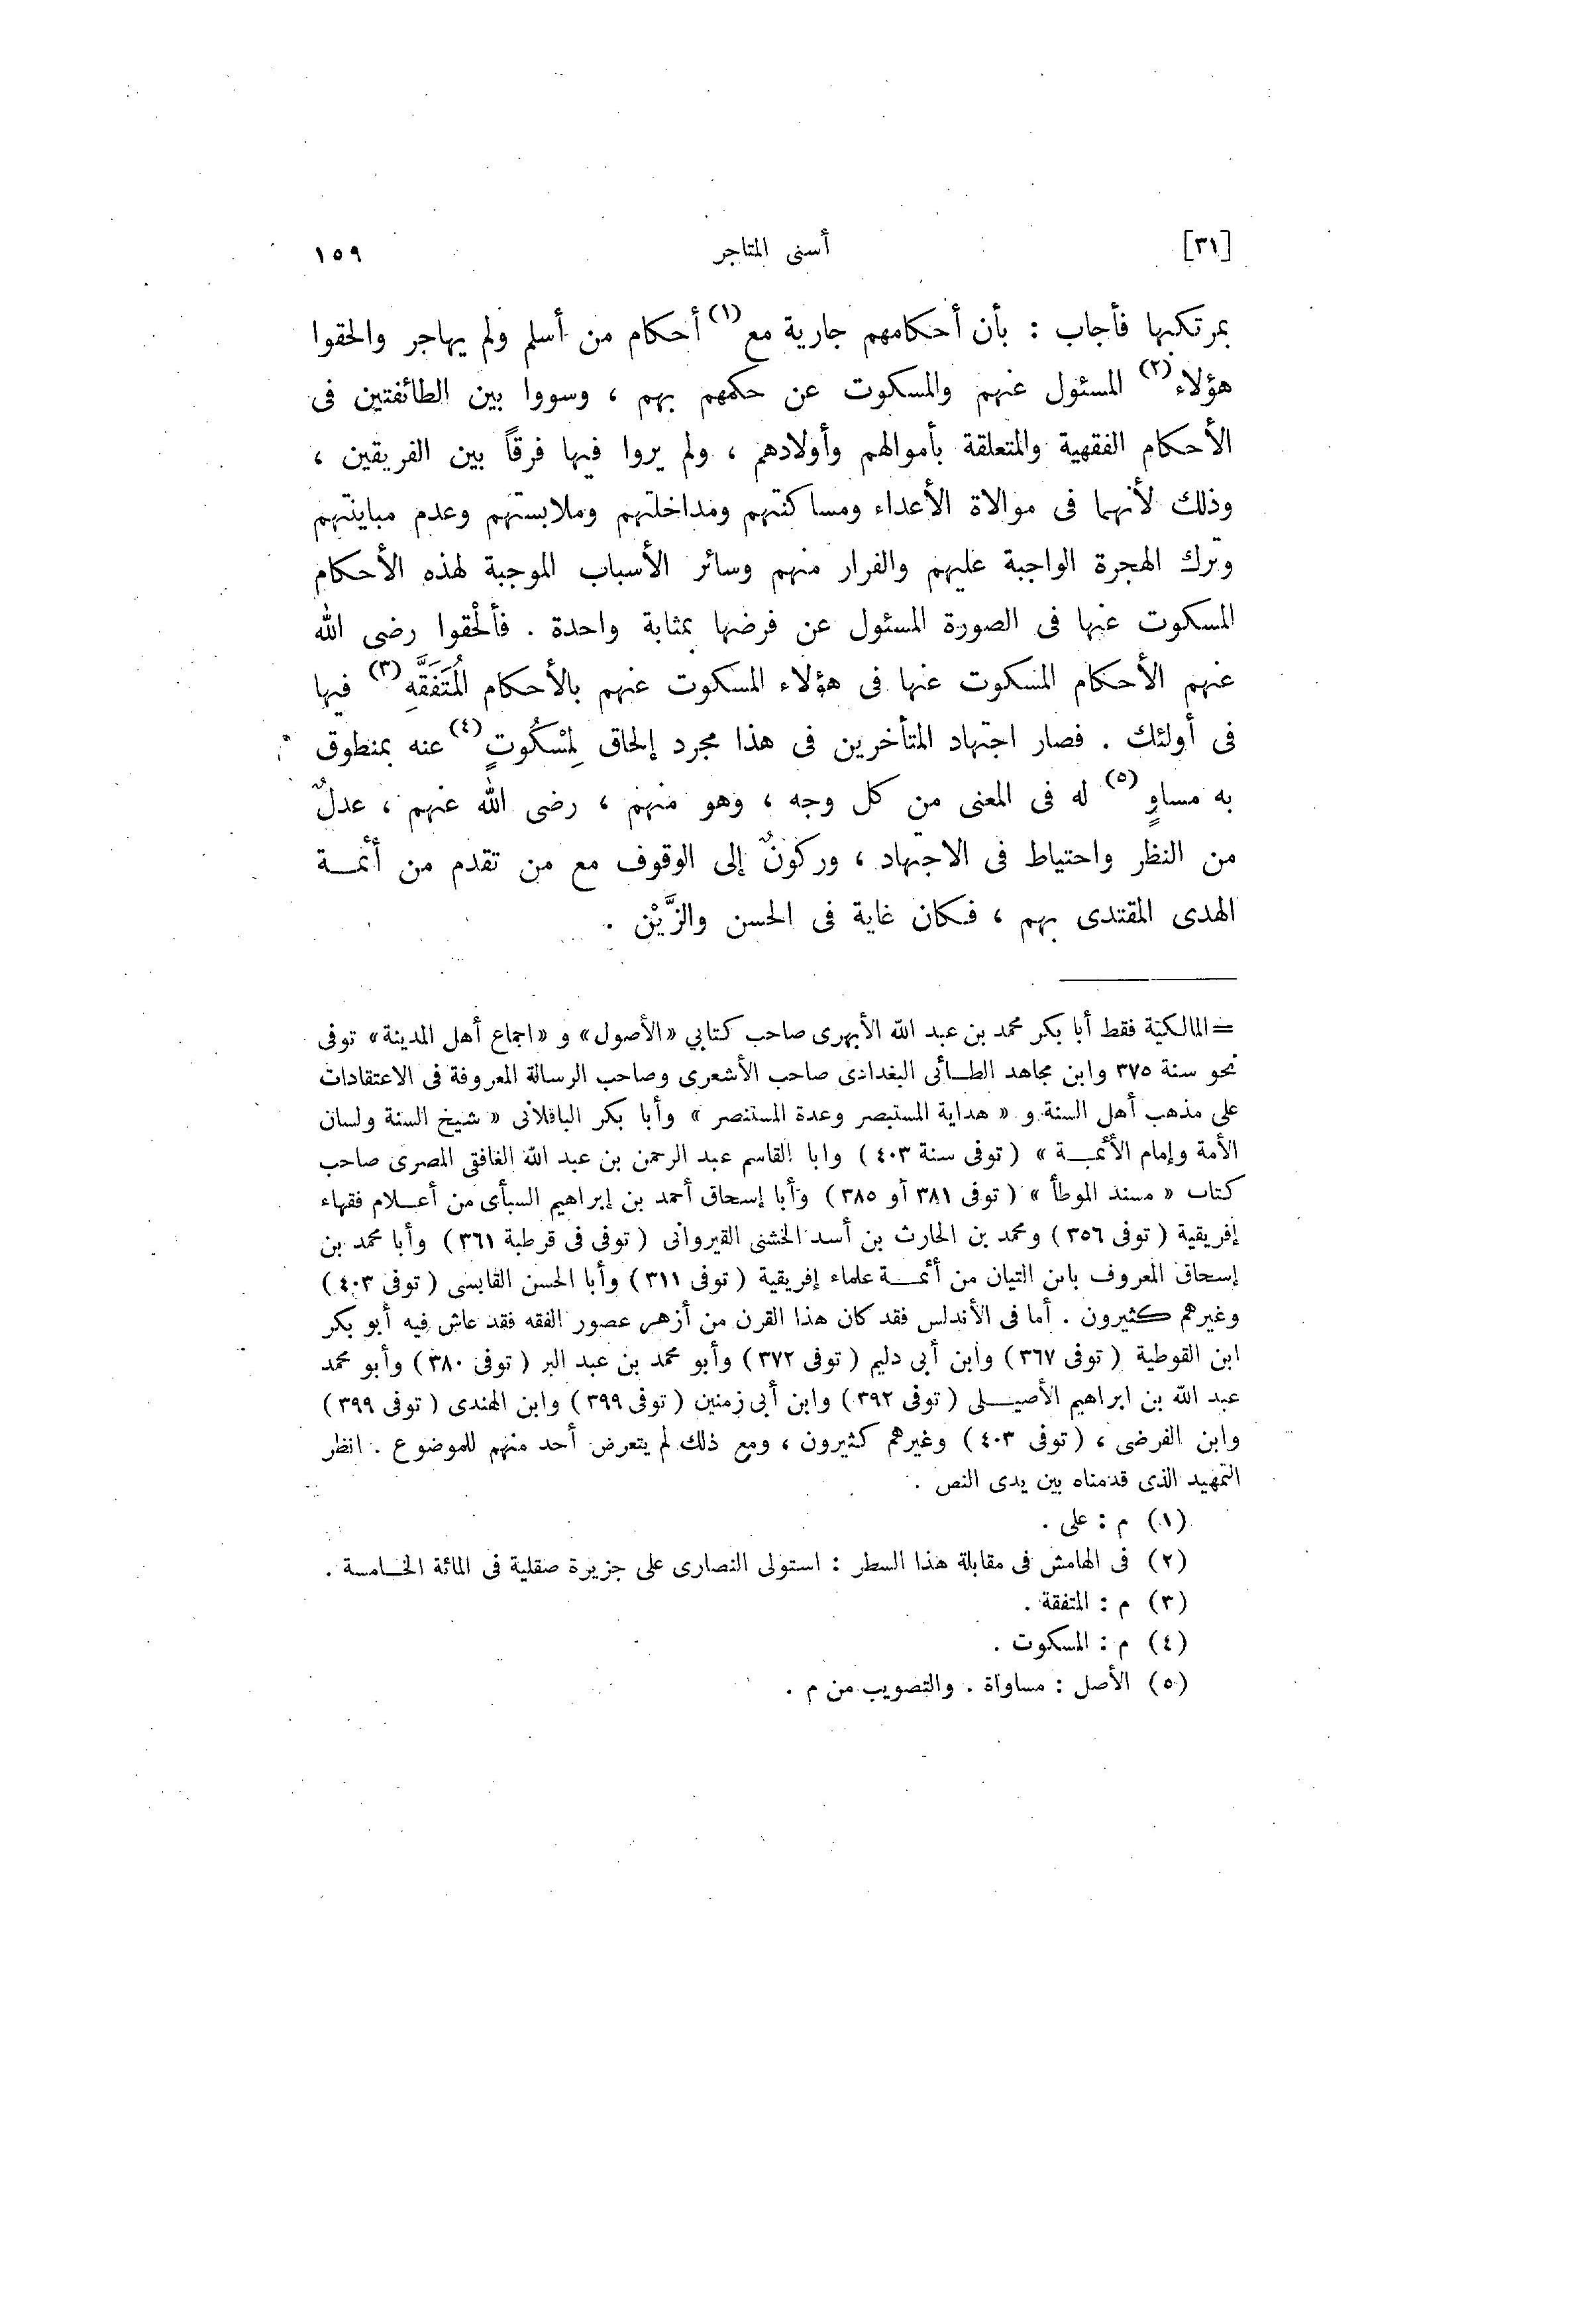 [٣١] أسنى المتاجر ١٥٩
بمرتكبها فأجاب : بأن أحكامهم جارية مع (١) أحكام من أسلم ولم يهاجر والحقوا
هؤلاء (٢) المسئول عنهم والمسكوت عن حكمهم بهم ، وسووا بين الطائفتين فى
الأحكام الفقهية والمتعلقة بأموالهم وأولادهم ، ولم يروا فيها فرقاً بين الفريقين ،
وذلك لأنهما فى موالاة الأعداء ومساكنتهم ومداخلتهم وملابستهم وعدم مباينتهم
وترك الهجرة الواجبة عليهم والفرار منهم وسائر الأسباب الموجبة لهذه الأحكام
المسكوت عنها فى الصورة المسئول عن فرضها بمثابة واحدة . فألْحقوا رضى الله
عنهم الأحكام المسكوت عنها فى هؤلاء المسكوت عنهم بالأحكام المُتَفَقَّهِ (٣) فيها
فى أولئك . فصار اجتهاد المتأخرين فى هذا مجرد إلحاق لِمسْكُوتٍ (٤) عنه بمنطوق
به مساوٍ (٥) له فى المعنى من كل وجه ، وهو منهم ، رضى الله عنهم ، عدلٌ
من النظر واحتياط فى الاجتهاد ، وركونٌ إلى الوقوف مع من تقدم من أئمــة
الهدى المقتدى بهم ، فكان غاية فى الحسن والزَّيْن .
= المالكية فقط أبا بكر محمد بن عبد الله الأبهرى صاحب كتابي «الأصول» و «اجماع أهل المدينة» توفى
نحو سنة ٣٧٥ وابن مجاهد الطــائى البغدادى صاحب الأشعرى وصاحب الرسالة المعروفة فى الاعتقادات
على مذهب أهل السنة و « هداية المستبصر وعدة المستنصر » وأبا بكر الباقلانى « شيخ السنة ولسان
الأمة وإمام الأئمــة » ( توفى سنة ٤٠٣ ) وابا القاسم عبد الرحمن بن عبد الله الغافقى المصرى صاحب
كتاب « مسند الموطأ » ( توفى ٣٨١ أو ٣٨٥ ) وأبا إسحاق أحمد بن إبراهيم السبأى من أعــلام فقهاء
إفريقية ( توفى ٣٥٦ ) ومحمد بن الحارث بن أسد الخشنى القيروانى ( توفى فى قرطبة ٣٦١ ) وأبا محمد بن
إسحاق المعروف بابن التيان من أئمــة علماء إفريقية ( توفى ٣١١ ) وأبا الحسن القابسى ( توفى ٤٠٣ )
وغيرهم كثيرون . أما فى الأندلس فقد كان هذا القرن من أزهر عصور الفقه فقد عاش فيه أبو بكر
ابن القوطية ( توفى ٣٦٧ ) وابن أبى دليم ( توفى ٣٧٢ ) وأبو محمد بن عبد البر ( توفى ٣٨٠ ) وأبو محمد
عبد الله بن ابراهيم الأصيــلى ( توفى ٣٩٢ ) وابن أبى زمنين ( توفى ٣٩٩ ) وابن الهندى ( توفى ٣٩٩ )
وابن الفرضى ، ( توفى ٤٠٣ ) وغيرهم كثيرون ، ومع ذلك لم يتعرض أحد منهم للموضوع . انظر
التمهيد الذى قدمناه بين يدى النص .
(١) م : على .
(٢) فى الهامش فى مقابلة هذا السطر : استولى النصارى على جزيرة صقلية فى المائة الخــامسة .
(٣) م : المتفقة .
(٤) م : المسكوت .
(٥) الأصل : مساواة . والتصويب من م .